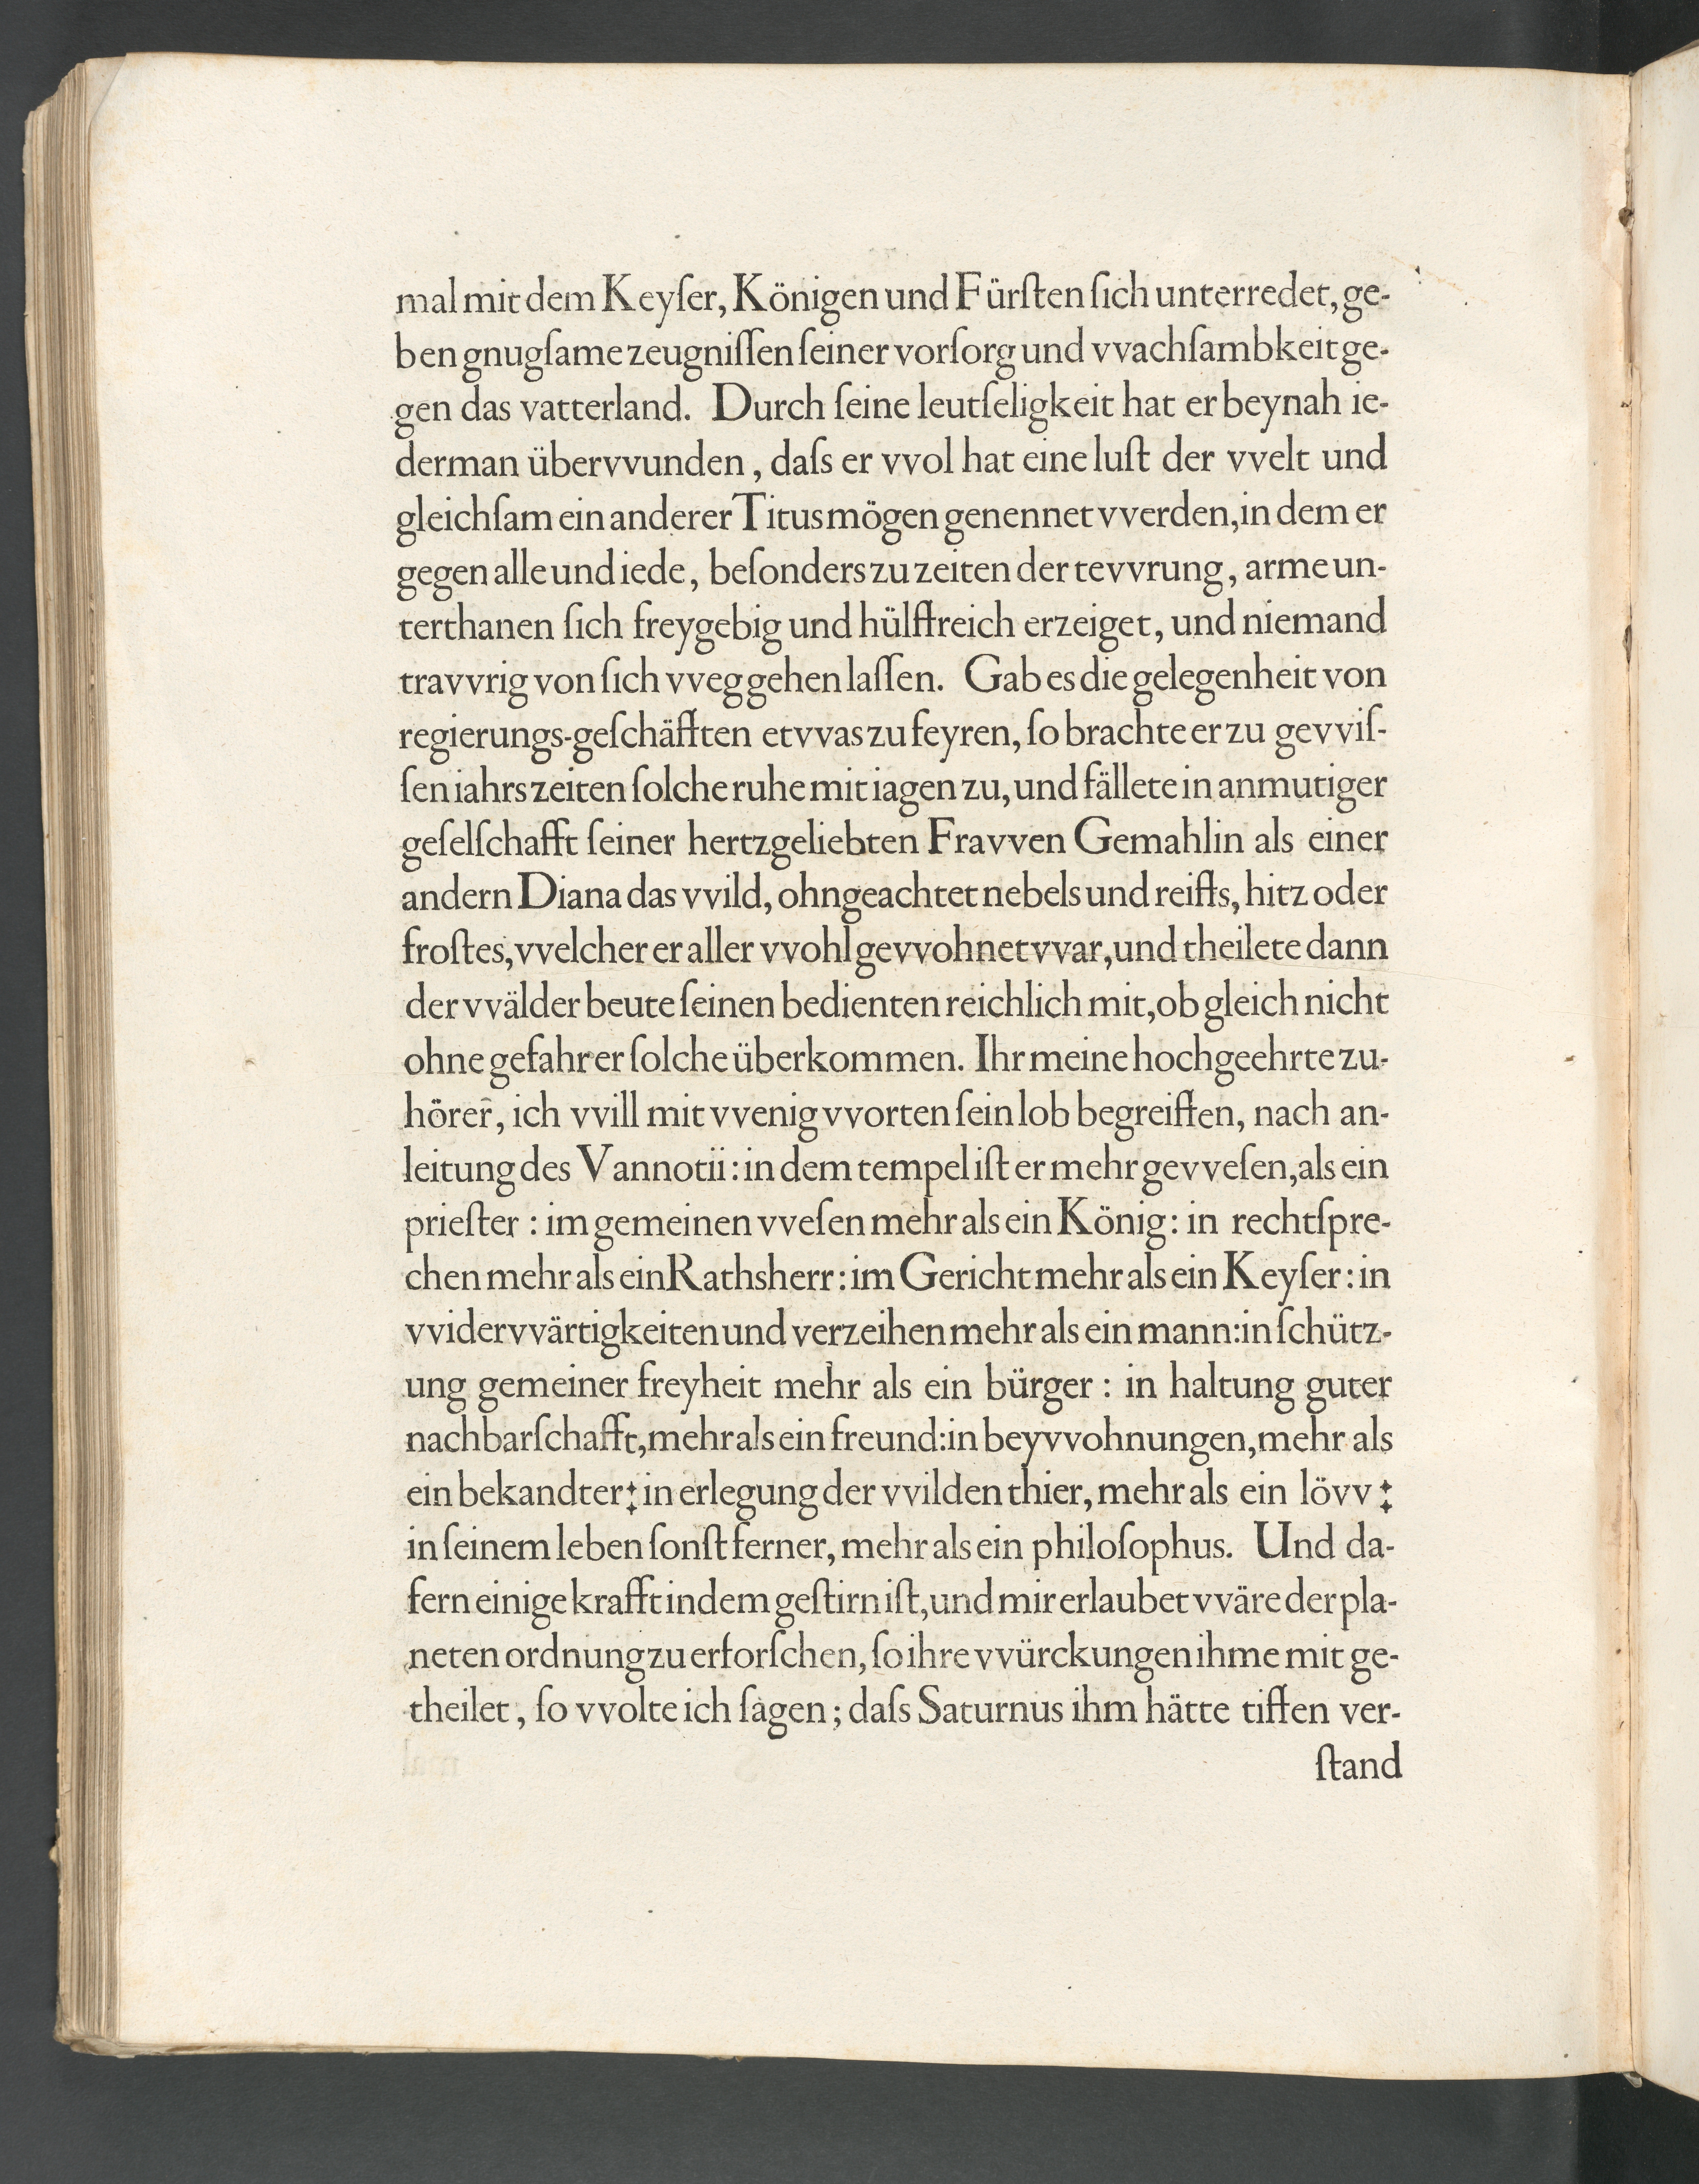 mal mit dem Keyſer, Königen und Fürſten ſich unterredet, ge-
ben gnugſame zeugniſſen ſeiner vorſorg und vvachſambkeit ge-
gen das vatterland. Durch ſeine leutſeligkeit hat er beynah ie-
derman übervvunden, daſs er vvol hat eine luſt der vvelt und
gleichſam ein anderer Titus mögen genennet vverden, in dem er
gegen alle und iede, beſonders zu zeiten der tevvrung, arme un-
terthanen ſich freygebig und hülffreich erzeiget, und niemand
travvrig von ſich vveg gehen laſſen. Gab es die gelegenheit von
regierungs-geſchäfften etvvas zu feyren, ſo brachte er zu gevviſ-
ſen iahrs zeiten ſolche ruhe mit iagen zu, und fällete in anmutiger
geſelſchafft ſeiner hertzgeliebten Fravven Gemahlin als einer
andern Diana das vvild, ohngeachtet nebels und reiffs, hitz oder
froſtes, vvelcher er aller vvohl gevvohnet vvar, und theilete dann
der vvälder beute ſeinen bedienten reichlich mit, ob gleich nicht
ohne gefahr er ſolche überkommen. Ihr meine hochgeehrte zu-
hörer, ich vvill mit vvenig vvorten ſein lob begreiffen, nach an-
leitung des Vannotii: in dem tempel iſt er mehr gevveſen, als ein
prieſter: im gemeinen vveſen mehr als ein König: in rechtſpre-
chen mehr als ein Rathsherr: im Gericht mehr als ein Keyſer: in
vvidervvärtigkeiten und verzeihen mehr als ein mann: in ſchütz-
ung gemeiner freyheit mehr als ein bürger: in haltung guter
nachbarſchafft, mehr als ein freund: in beyvvohnungen, mehr als
ein bekandter: in erlegung der vvilden thier, mehr als ein lövv:
in ſeinem leben ſonſt ferner, mehr als ein philoſophus. Und da-
fern einige krafft in dem geſtirn iſt, und mir erlaubet vväre der pla-
neten ordnung zu erforſchen, ſo ihre vvürckungen ihme mit ge-
theilet, ſo vvolte ich ſagen; daſs Saturnus ihm hätte tiffen ver-
ſtand